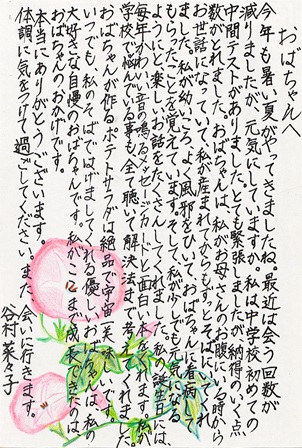 おばちゃんへ
今年も暑い夏がやってきましたね。最近は会う回数が
減りましたが、元気にしていますか。私は中学校初めての
中間テストがありました。とても緊張しましたが納得のいく点
数がとれました。おばちゃんは、私がお母さんのお腹にいる時から
お世話になっていて、私が産まれてからもずっとそばにいてくれ
ました。私が幼いころ、よく風邪をひいて、おばちゃんに看病して
もらったことを覚えています。そして、私が少しでも元気になる
ようにと楽しいお話をたくさんしてくれました。私の誕生日には
毎年かわいい音の鳴るメッセージカードと面白い本をくれます。私が
学校で悩んでいる事も全て聴いて解決法まで考えてくれました。
おばちゃんが作るポテトサラダは絶品で宇宙一美味しいです。
いつでも、私のそばではげましてくれる優しいおばちゃんは、私の
大好きな自慢のおばちゃんです。私がここまで成長できたのは、
おばちゃんのおかげです。
本当にありがとうございます。
体調に気をつけて過ごしてください。また、会いに行きます。
谷村菜々子